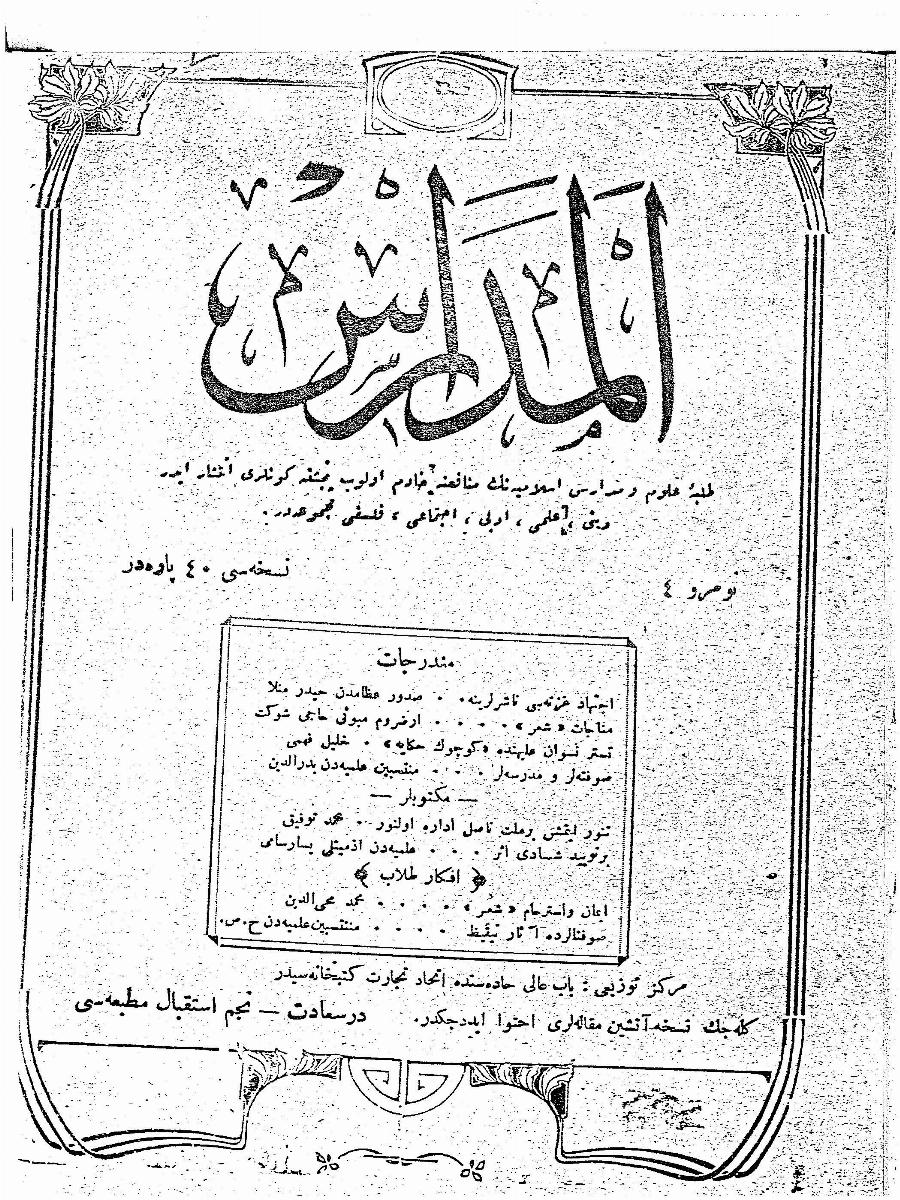 المدارس
طلبهٔ علوم و مدارس اسلامیه‌نك منافعنه خادم اولوب پنجشنبه کونلری انتشار ایدر
دینی ، علمی ، ادبی ، اجتماعی ، فلسفی مجموعه‌در .
نومرو ٤
نسخه‌سی ٤٠ پاره‌در
مندرجات
اجتهاد غزته‌سی ناشرلرینه . . صدور عظامدن حیدر منلا
مناجات « شعر » . . . . ارضروم مبعوثی حاجی شوکت
تستر نسوان علیهنده «کوچوك حکایه» . خلیل فهمی
صوفته‌لر و مدرسه‌لر . . . منتسبین علمیه‌دن بدرالدین
— مکتوبلر —
تنور ایتمش برملت ناصل اداره اولنور . . محمد توفیق
برنویید شبادی اثر . . . علمیه‌دن ازمیتلی
﴿ افکار طلاب ﴾
ایمان واسترحام « شعر » . . . . . محمد محی‌الدین
صوفتالرده آثار تیقظ . . . . منتسبین علمیه‌دن ح . ص .
مرکز توزیعی : باب عالی جاده‌سنده اتحاد تجارت کتبخانه‌سیدر
کله‌جك نسخه آتشین مقاله‌لری احتوا ایده‌جکدر .
درسعادت — نجم استقبال مطبعه‌سی